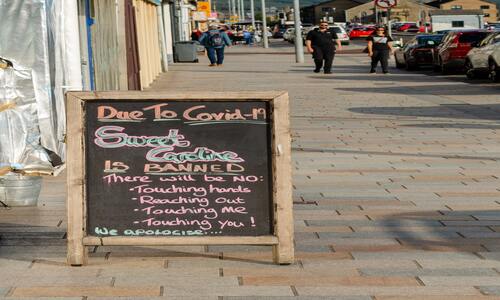 Due To Covid-19
Sweet
Caroline
IS BANNED
There will be NO:
- Touching hands
- Reaching Out
- Touching Me
- Touching you!
We apologise....